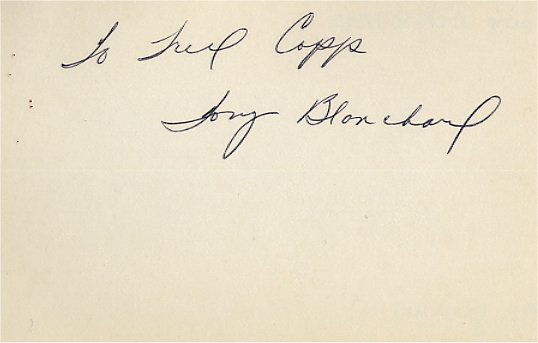 To Fred Capp
Tony Blanchard